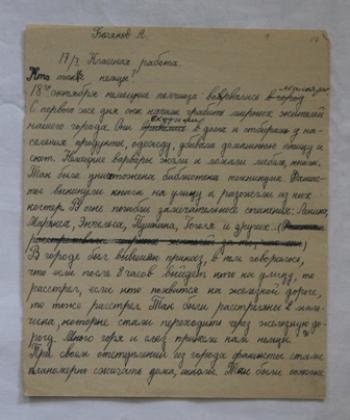 Боганов А.
17/I. Классная работа.
Кто такие немцы?
18го октября немецкие полчища ворвались в город
С первого же дня они начали грабить мирных жителей
нашего города. Они входили в дома и отбирали у на-
селения продукты, одежду, убивали домашнюю птицу и
скот. Немецкие варвары жгли и ломали мебель, книги.
Так была уничтожена библиотека техникума. Фашис-
ты выкинули книги на улицу и разожгли из них
костёр. В огне погибли замечательные сочинения: Ленина,
Маркса, Энгельса, Пушкина, Гоголя и других.
В городе был вывешен приказ, в нём говорилось,
что если после 8 часов выйдет кто на улицу, то
расстрел, если кто появится на железной дороге,
то тоже расстрел. Так были расстреляны 2 маль-
чика, которые стали переходить через железную до-
рогу. Много горя и слёз принесли нам немцы.
При своём отступлении из города фашисты стали
планомерно сжигать дома, школы. Там были